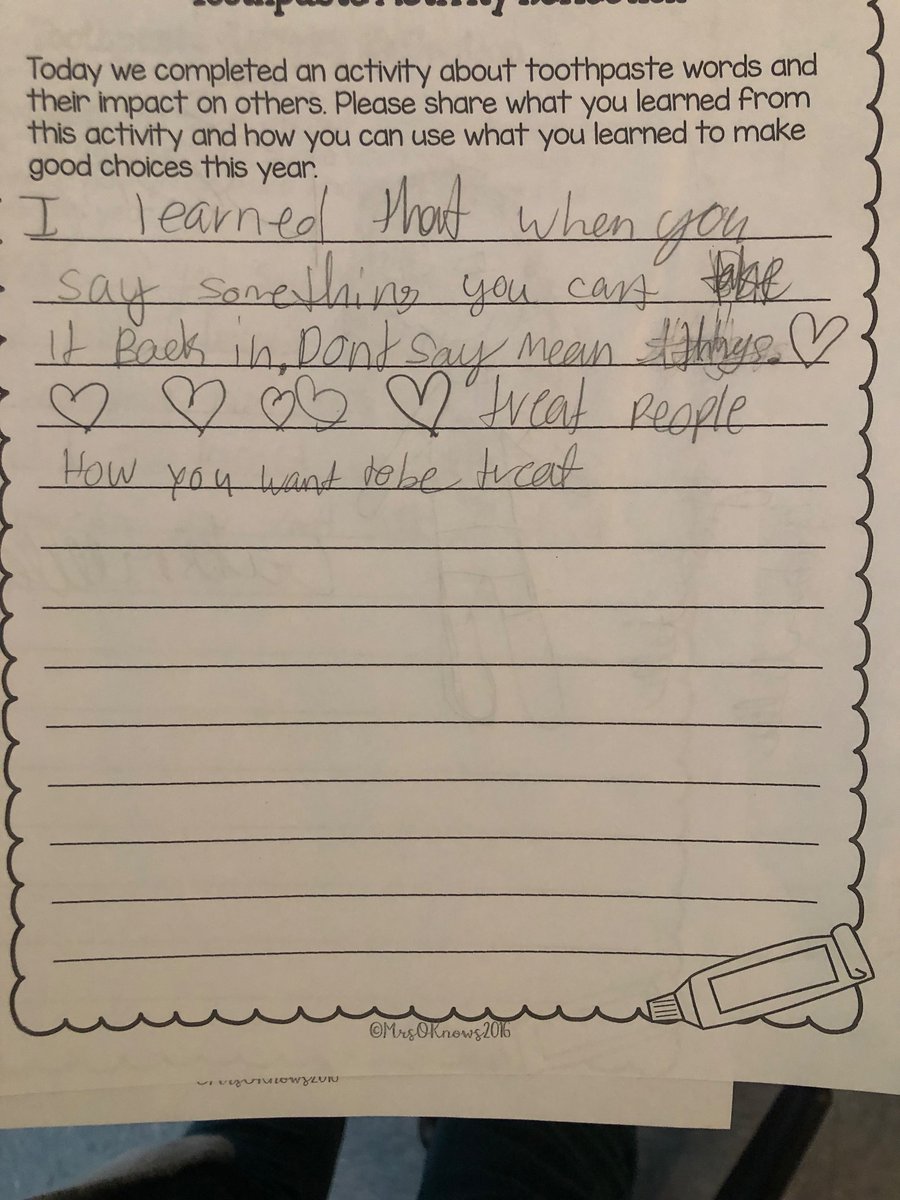 Today we completed an activity about toothpaste words and
their impact on others. Please share what you learned from
this activity and how you can use what you learned to make
good choices this year.
I learned that when you
say something you cant take
it Back in. Dont Say mean things.
treat People
How you want to be treat
©MrsOKnows2016